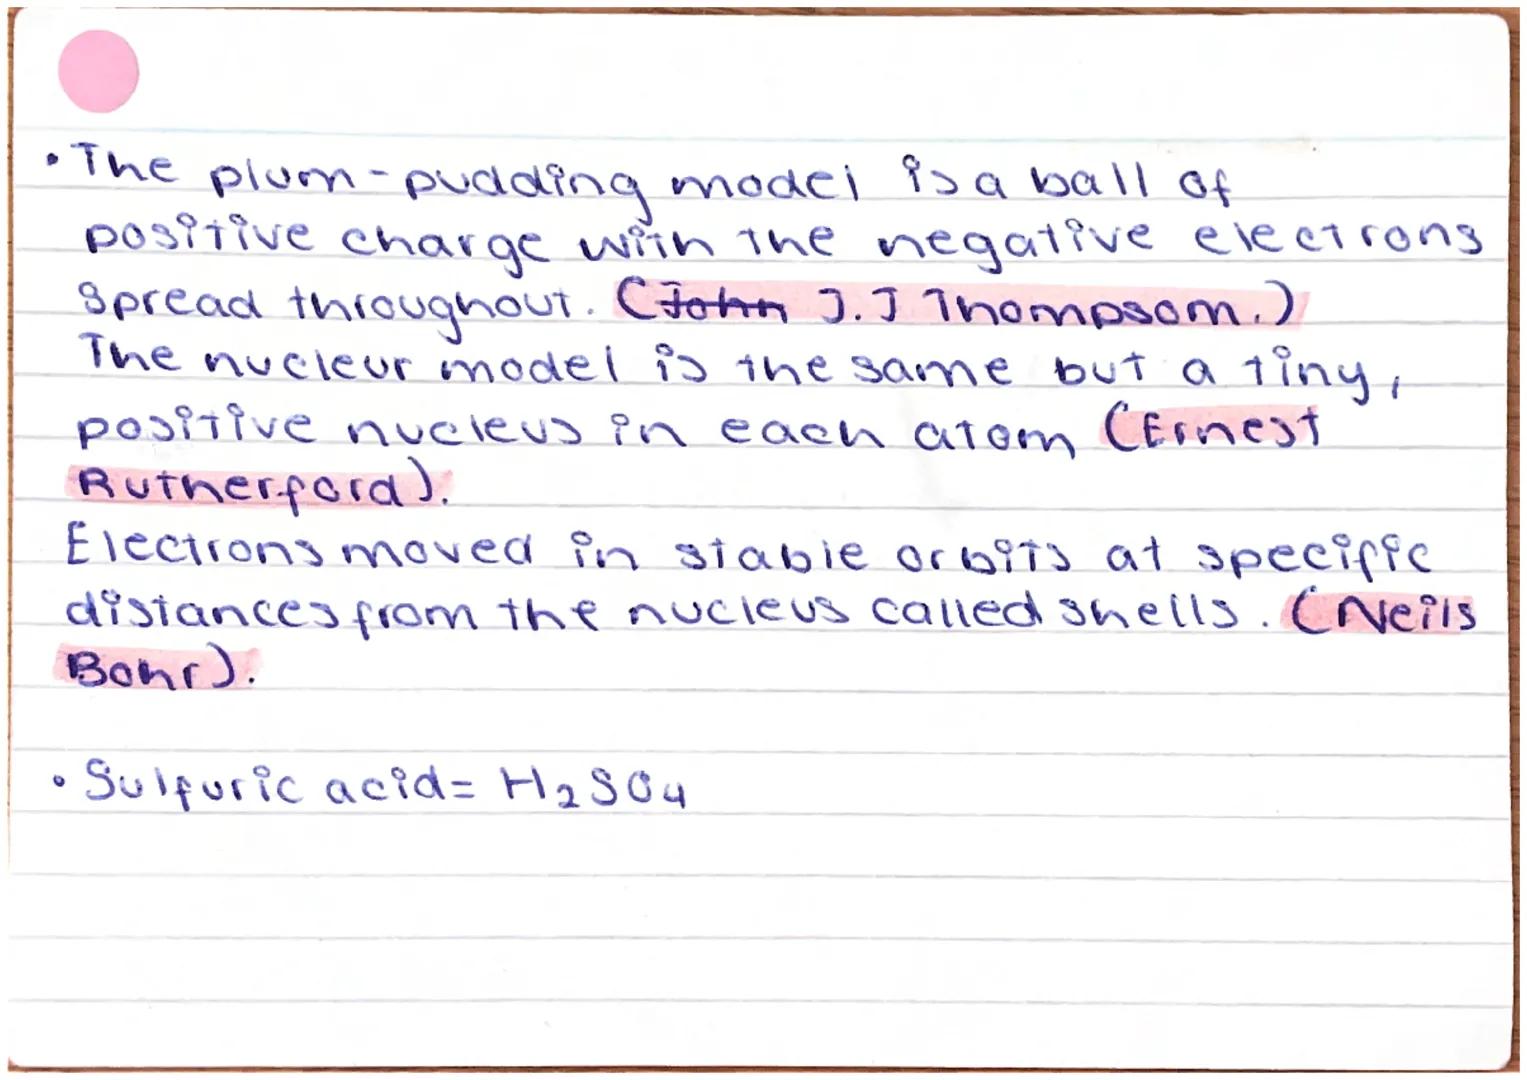 • The plum-pudding model is a ball of
positive charge with the negative electrons
spread throughout. (~~John~~ J.J Thompsom.)
The nucleur model is the same but a tiny,
positive nucleus in each atom (Ernest
Rutherford).
Electrons moved in stable orbits at specific
distances from the nucleus called shells. (Neils
Bohr).
• Sulfuric acid= H₂SO₄